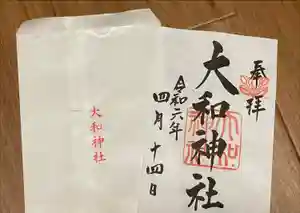 大和神社
奉拝
大和神社
令和六年
四月十四日